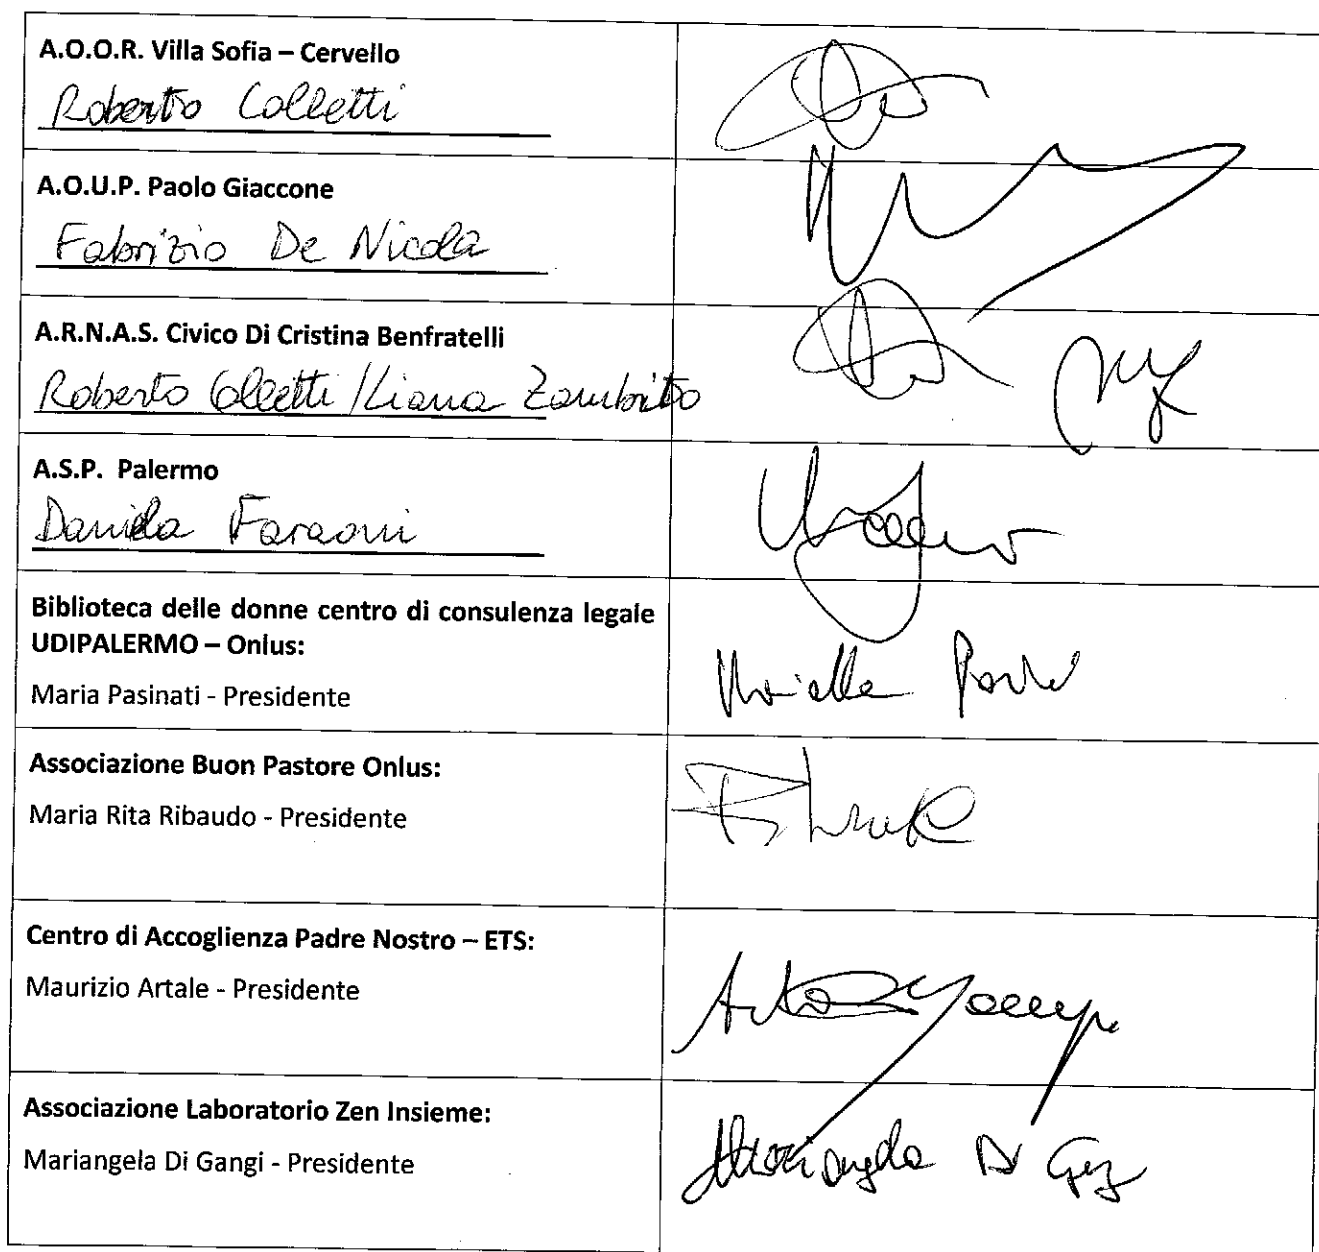 A.O.O.R. Villa Sofia – Cervello
Roberto Colletti
A.O.U.P. Paolo Giaccone
Fabrizio De Nicola
A.R.N.A.S. Civico Di Cristina Benfratelli
Roberto Colletti / Liana Zambito
A.S.P. Palermo
Daniela Faraoni
Biblioteca delle donne centro di consulenza legale
UDIPALERMO – Onlus:
Maria Pasinati - Presidente
Mariella
Associazione Buon Pastore Onlus:
Maria Rita Ribaudo - Presidente
Centro di Accoglienza Padre Nostro – ETS:
Maurizio Artale - Presidente
Associazione Laboratorio Zen Insieme:
Mariangela Di Gangi - Presidente
Mariangela Di